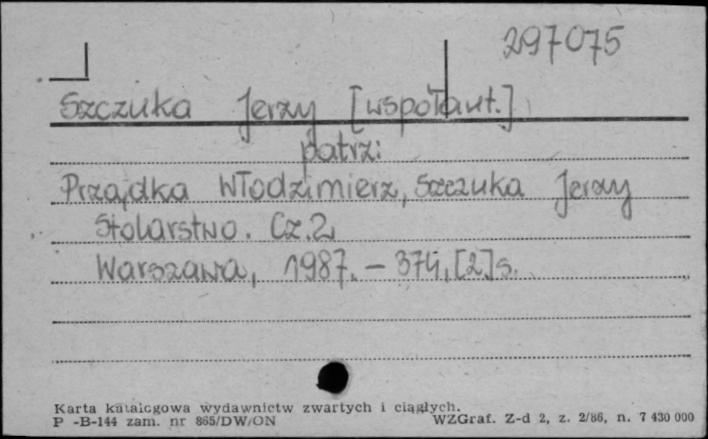 297075
Szczuka Jerzy [współaut.]
patrz:
Prządka Włodzimierz, Szczuka Jerzy
Stolarstwo. Cz.2
Warszawa, 1987. – 374, [2] s.
Karta katalogowa wydawnictw zwartych i ciągłych.
P -B-144 zam. nr 865/DW/ON WZGraf. Z-d 2, z. 2/86, n. 7 430 000